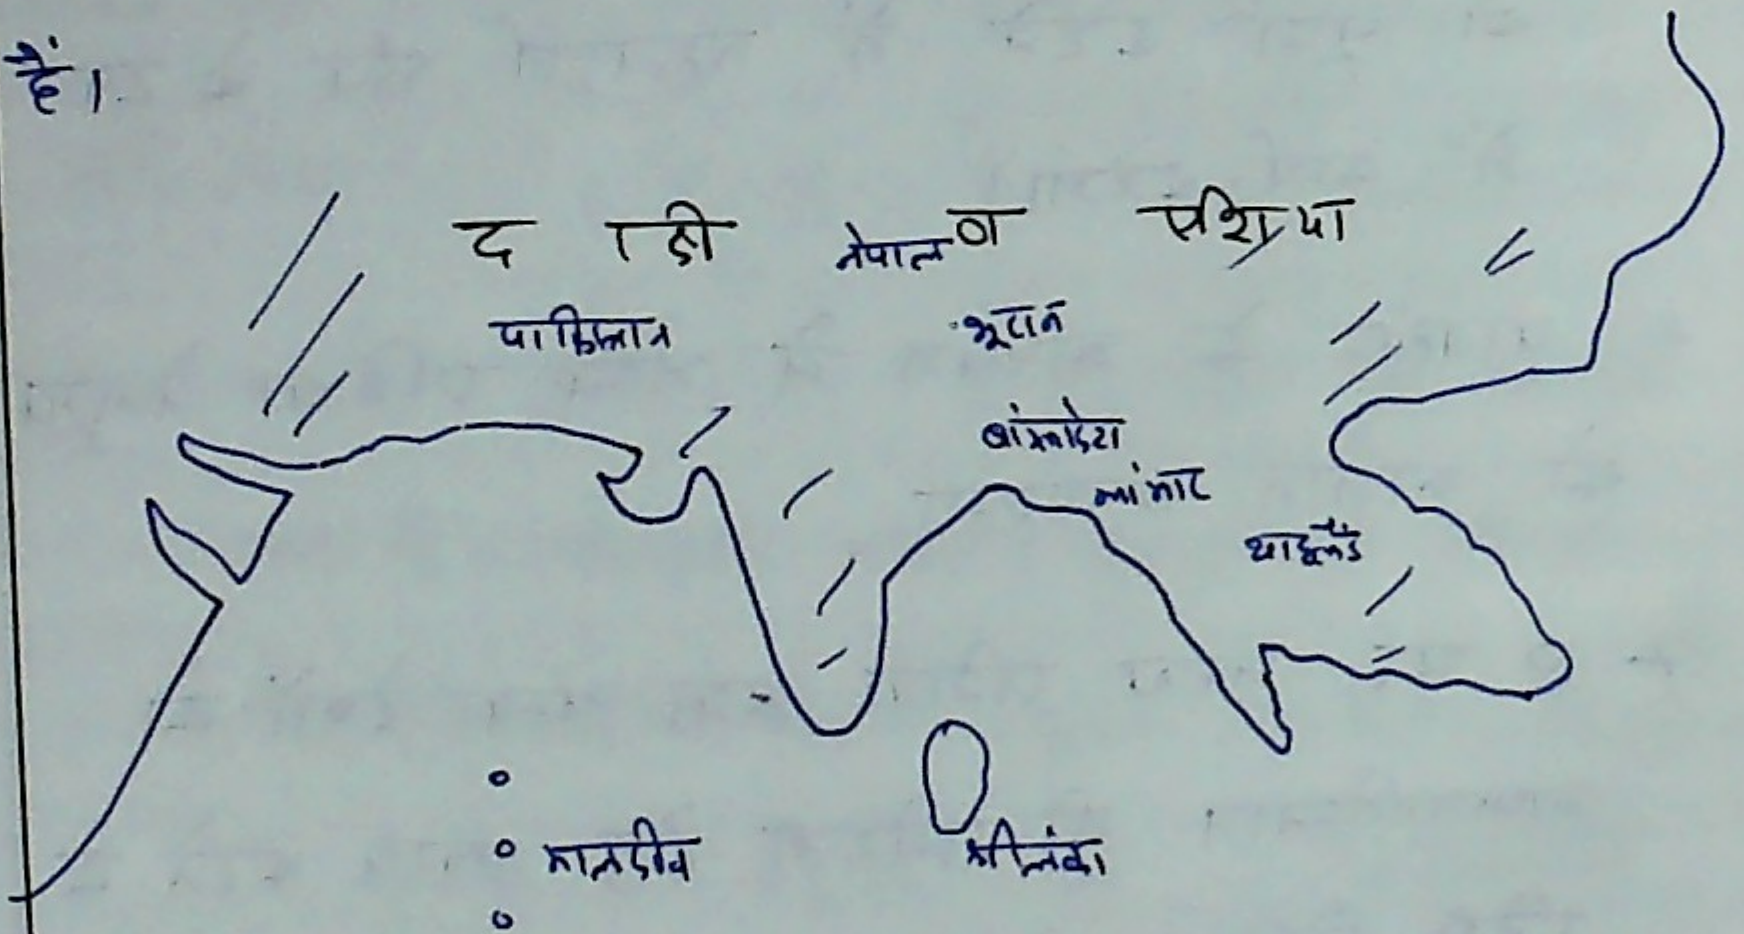 हैं।
द िक्षी ण एशिया
नेपाल
पाकिस्तान भूटान
बांग्लादेश
म्यांमार
थाइलैंड
मालदीव श्रीलंका